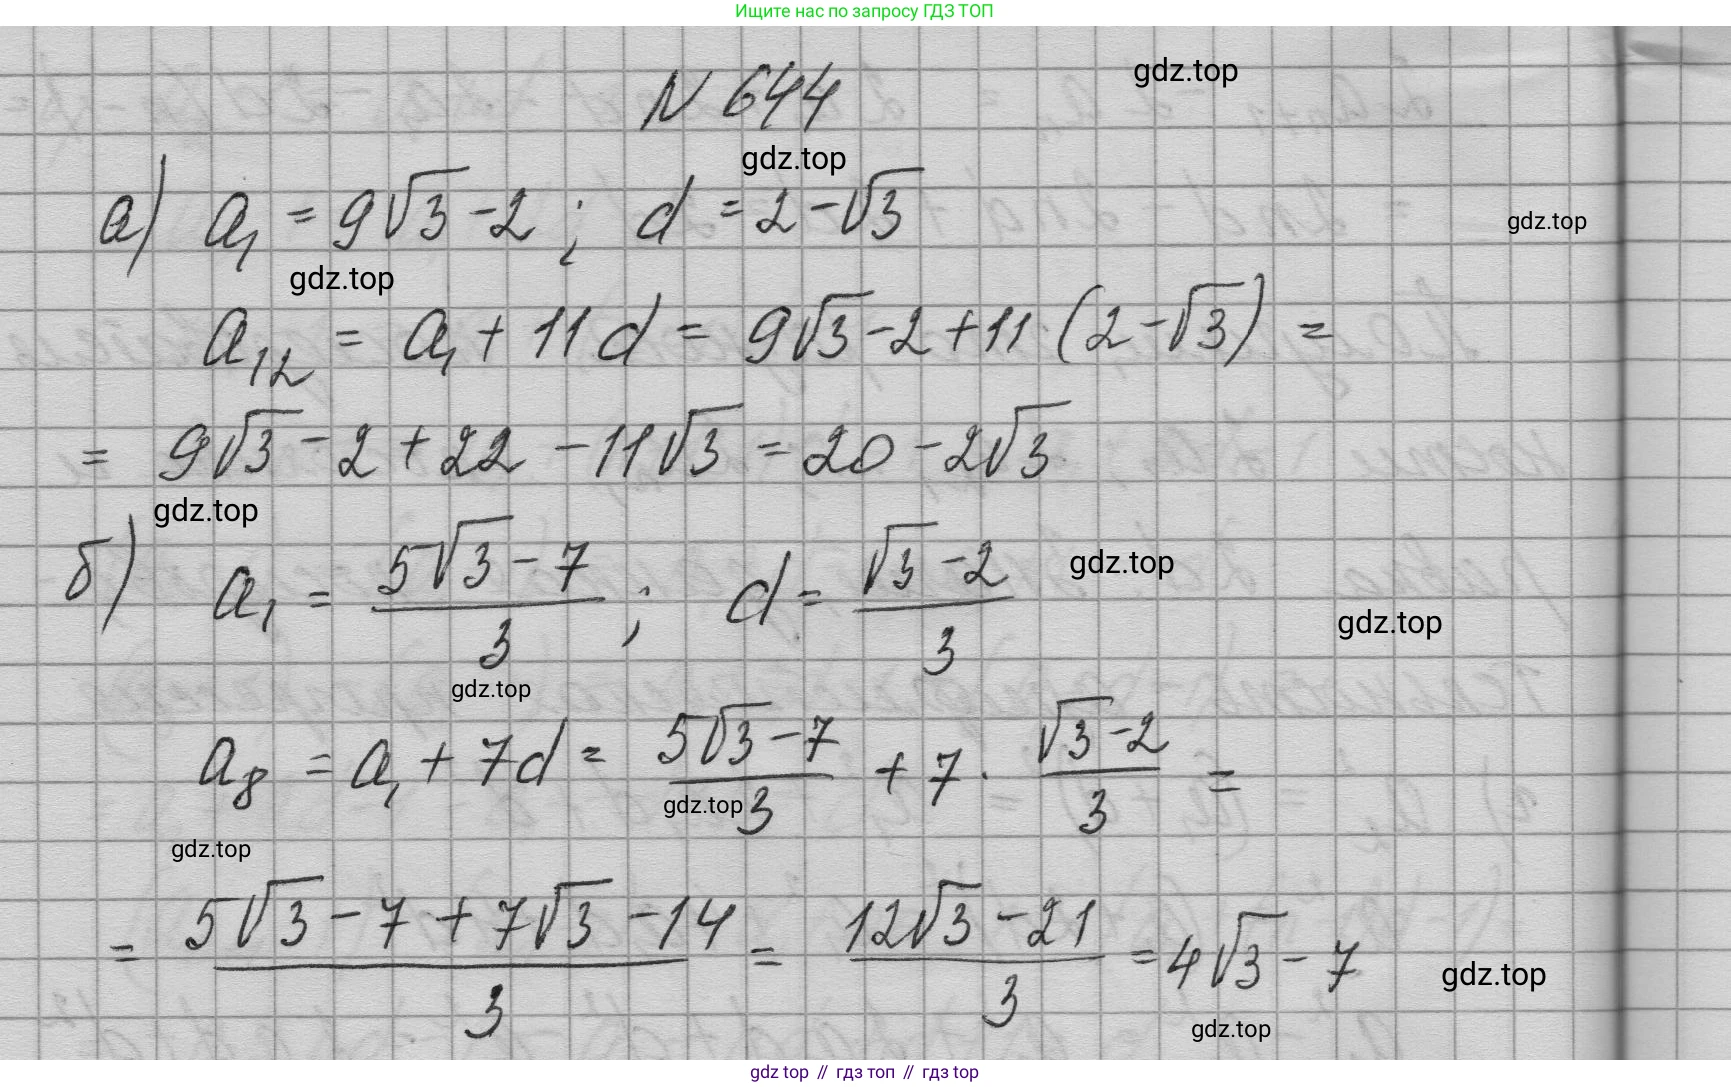 Ищите нас по запросу ГДЗ ТОП
N 644
gdz.top
gdz.top
а) a₁ = 9√3 - 2 ; d = 2 - √3
gdz.top
gdz.top
a₁₂ = a₁ + 11d = 9√3 - 2 + 11 · (2 - √3) =
= 9√3 - 2 + 22 - 11√3 = 20 - 2√3
gdz.top
б) a₁ = (5√3 - 7)/3 ; d = (√3 - 2)/3
gdz.top
gdz.top
gdz.top
a₈ = a₁ + 7d = (5√3 - 7)/3 + 7 · (√3 - 2)/3 =
gdz.top
gdz.top
= (5√3 - 7 + 7√3 - 14)/3 = (12√3 - 21)/3 = 4√3 - 7
gdz.top
gdz.top
gdz top // гдз топ // гдз top